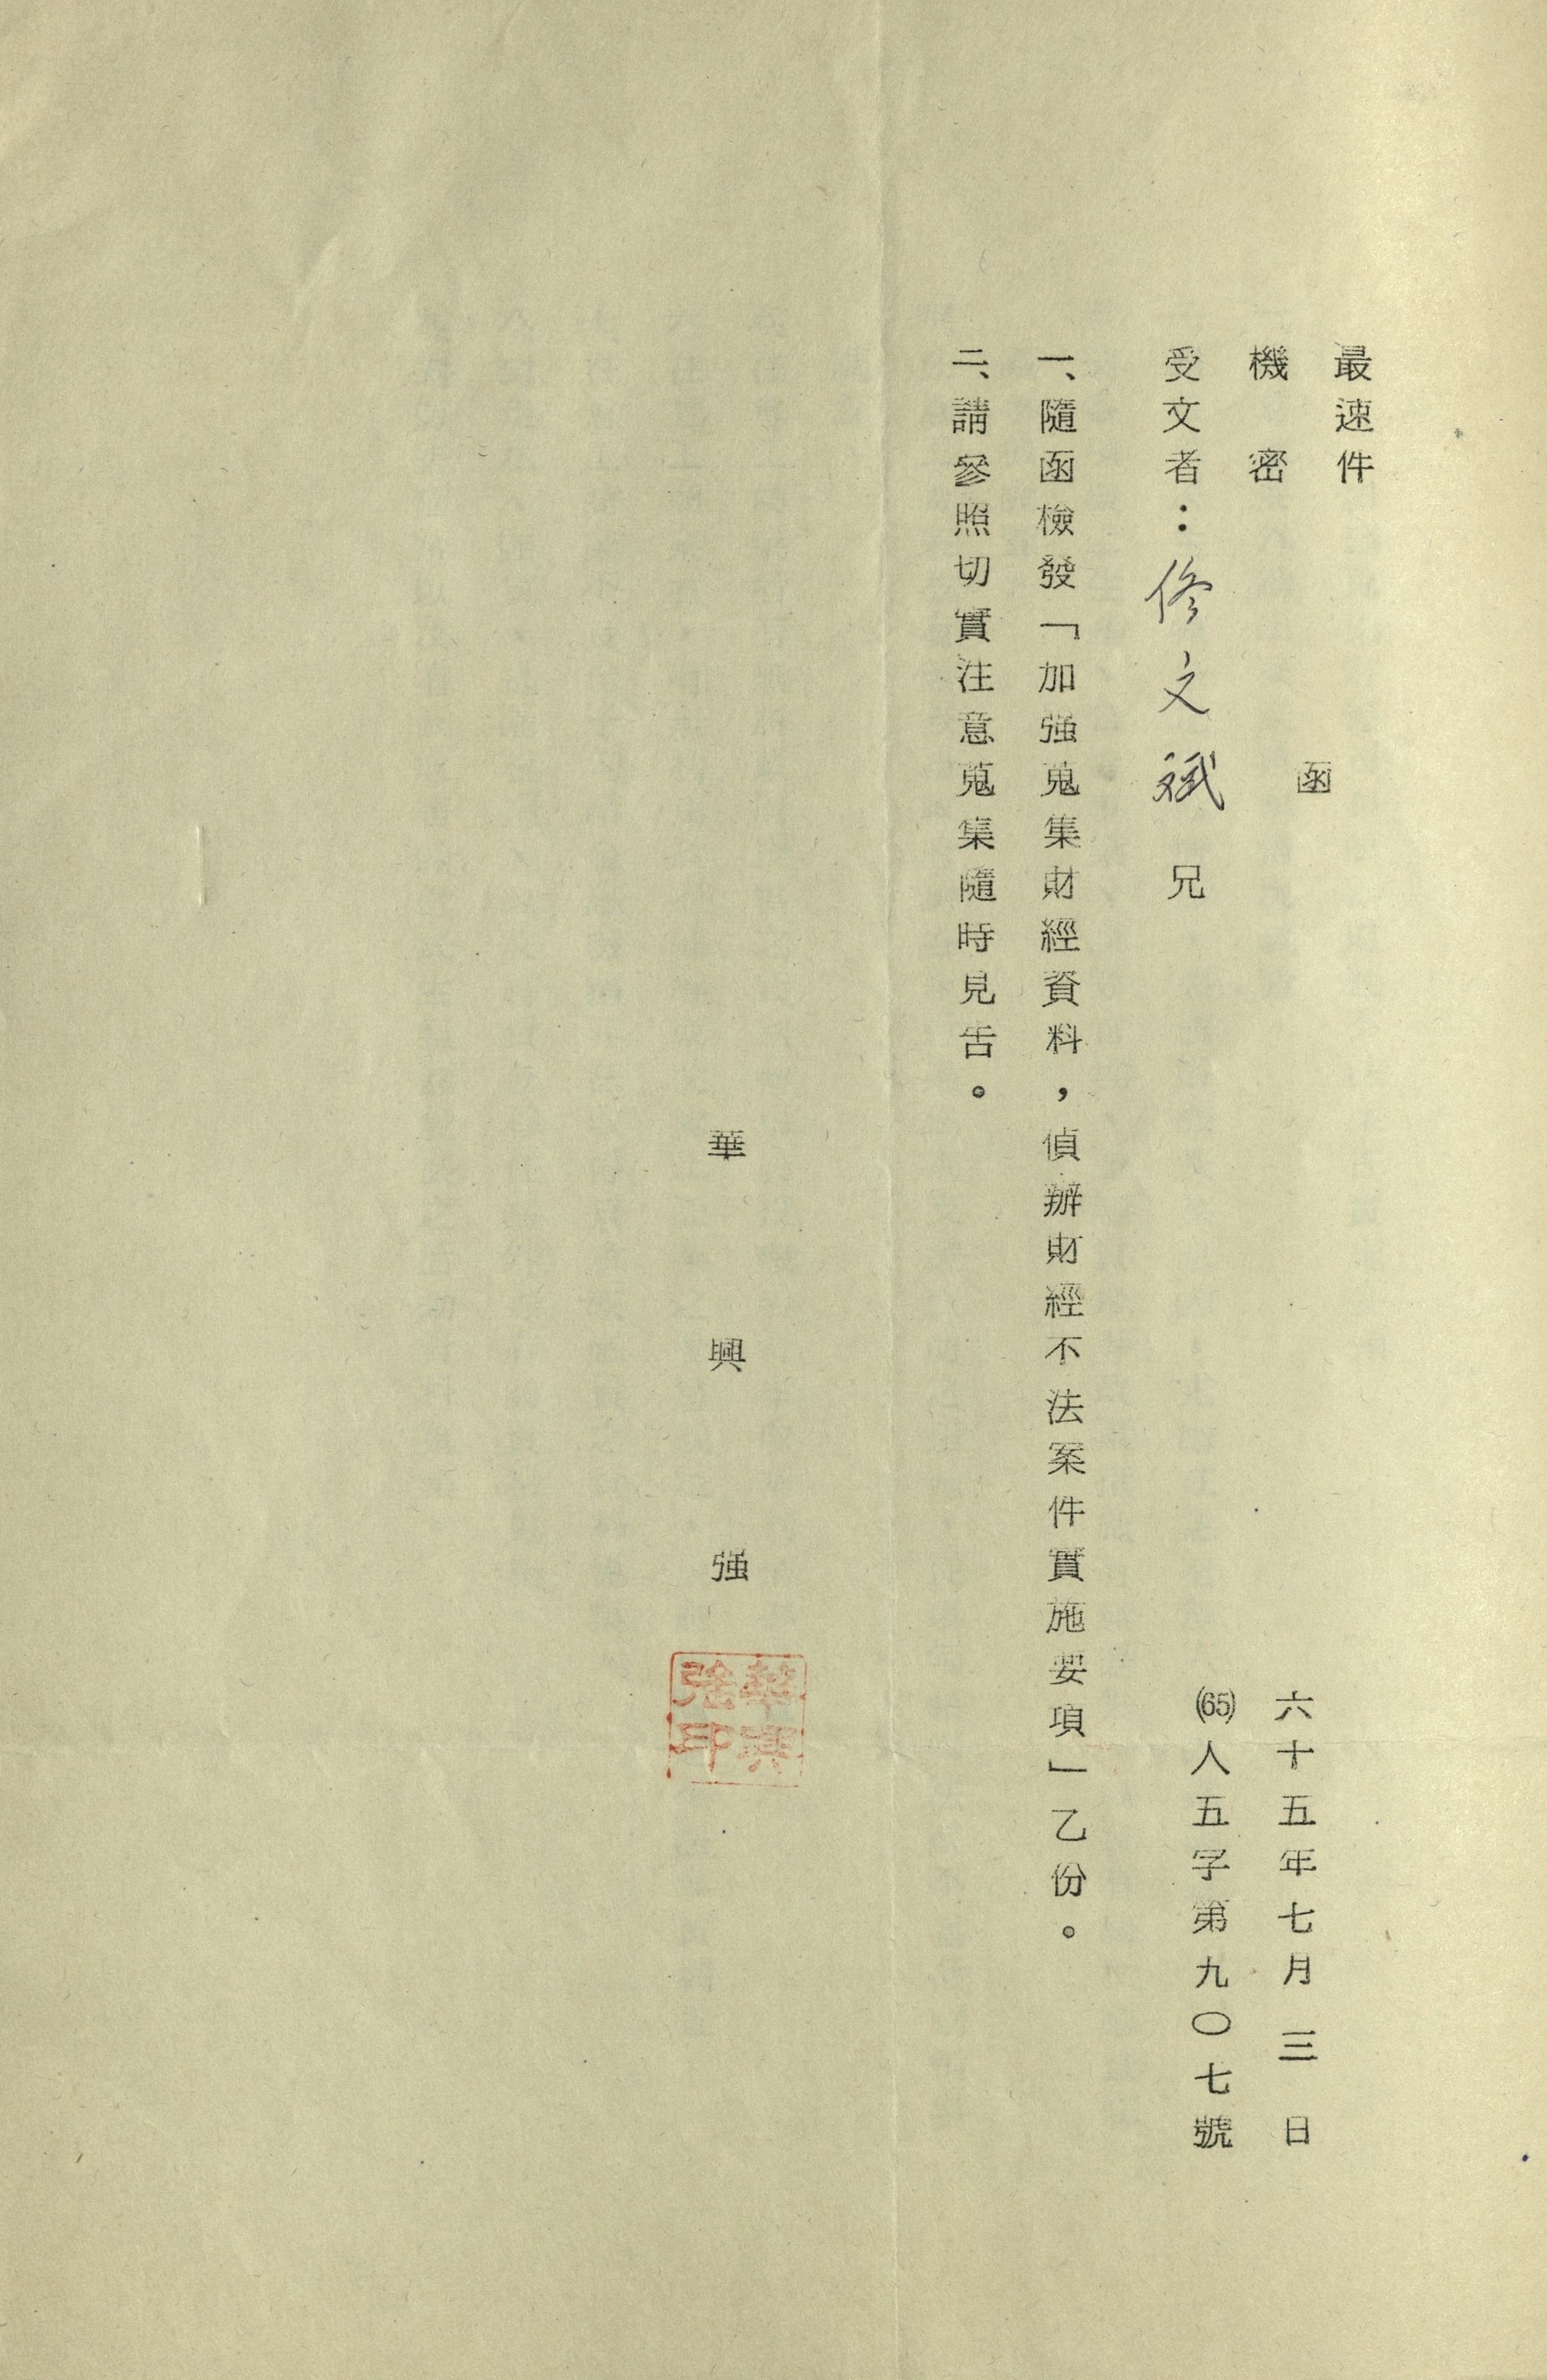 最速件
函
機密
六十五年七月三日
(65)人五字第九〇七號
受文者：修文斌兄
一、隨函檢發「加强蒐集財經資料，偵辦財經不法案件實施要項」乙份。
二、請參照切實注意蒐集隨時見告。
華興强
華興強印